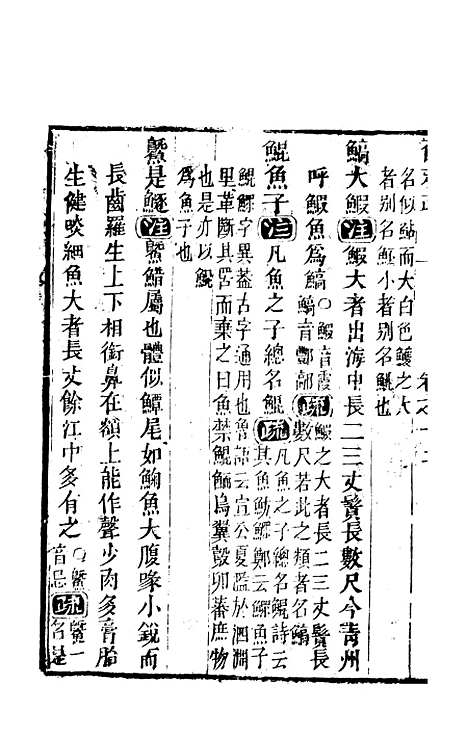 名似鮎而大白色鱯之大
者別名魾小者別名鮡也
鰝大鰕注鰕大者出海中長二三丈鬚長數尺今青州
呼鰕魚爲鰝○鰕音霞鰝音酆鄗疏鰕之大者長二三丈鬚長
數尺若此之類者名鰝
鯤魚子注凡魚之子總名鯤疏凡魚之子總名鯤詩云
其魚魴鰥鄭云鰥魚子
鯤鰥字異蓋古字通用也魯語云宣公夏濫於泗淵
里革斷其罟而棄之曰魚禁鯤鮞鳥翼鷇卵蕃庶物
也是亦以鯤
爲魚子也
鱀是鱁注鱀䱜屬也體似鱏尾如䱡魚大腹喙小銳而
長齒羅生上下相銜鼻在額上能作聲少肉多膏胎
生健啖細魚大者長丈餘江中多有之○鱀
音忌疏鱀一
名是